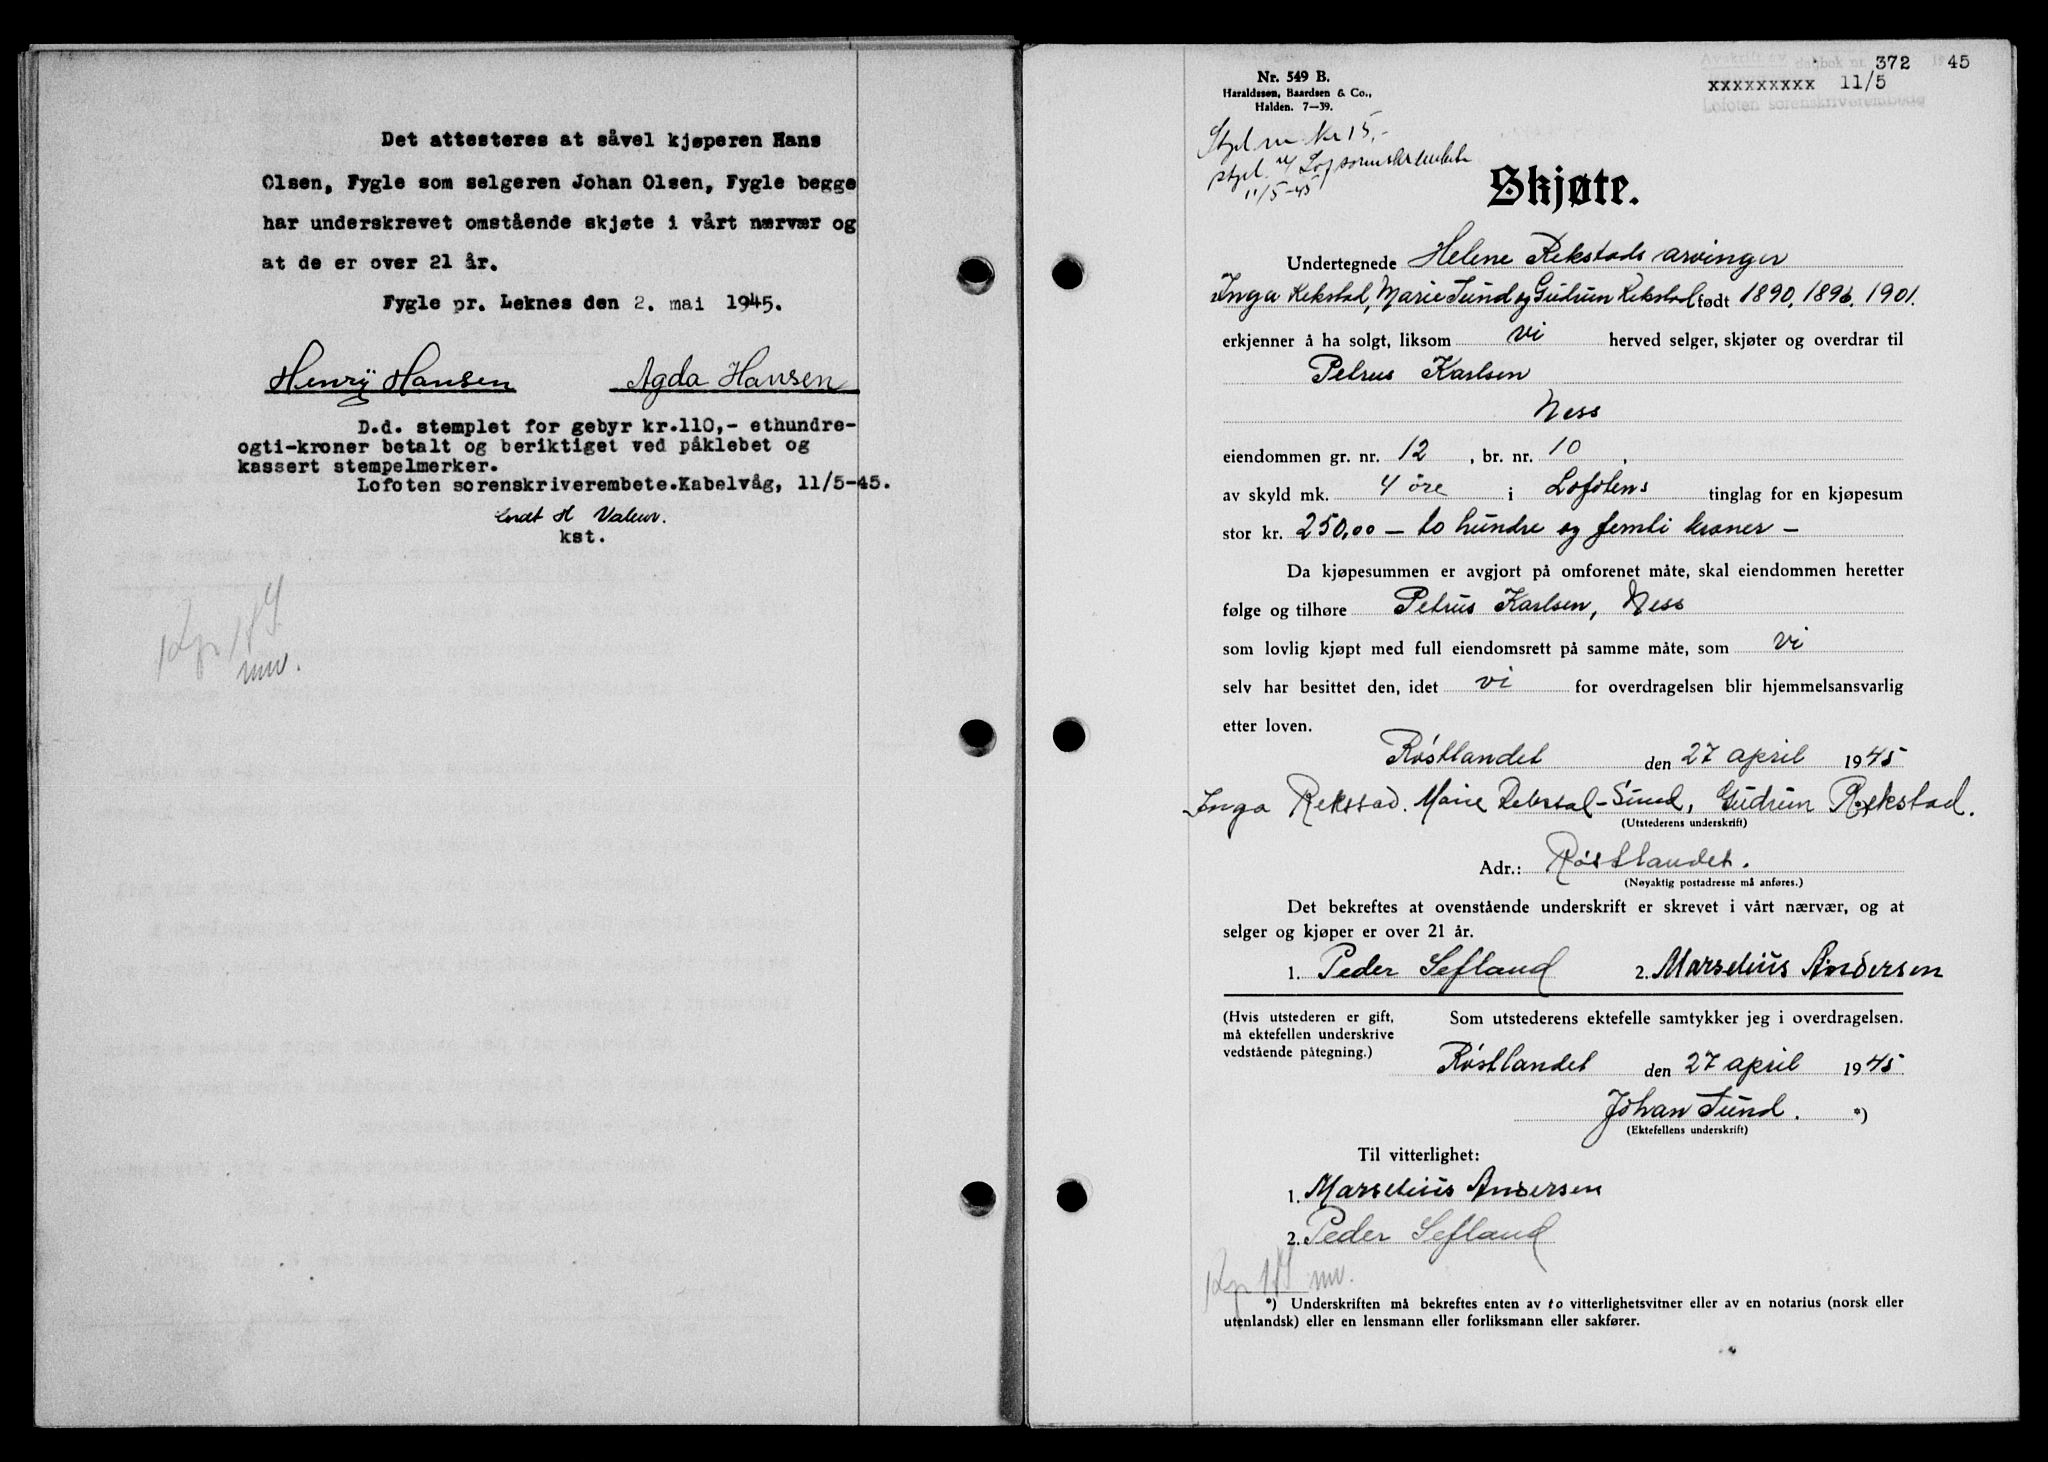 Det attesteres at såvel kjøperen Hans
Olsen, Fygle som selgeren Johan Olsen, Fygle begge
har underskrevet omstående skjøte i vårt nærvær og
at de er over 21 år.
Fygle pr. Leknes den 2. mai 1945.
Henry Hansen Agda Hansen
D.d. stemplet for gebyr kr.110,- ethundre-
ogti-kroner betalt og beriktiget ved påklebet og
kassert stempelmerker.
Lofoten sorenskriverembete.Kabelvåg, 11/5-45.
H Valeur.
kst.
mw.
Avskrift av dagbok nr. 372 19 45
xxxxxxxxx 11/5
Lofoten sorenskriverembede
Nr. 549 B.
Haraldssøn, Baardsen & Co.,
Halden. 7—39.
Stpl m Kr 15,-
stpl. v/ Lof sorenskr embete
11/5-45
Skjøte.
Undertegnede Helene Rekstads arvinger
Inga Rekstad, Marie Sund og Gudrun Rekstad født 1890, 1896, 1901.
erkjenner å ha solgt, liksom vi herved selger, skjøter og overdrar til
Petrus Karlsen
Ness
eiendommen gr. nr. 12, br. nr. 10,
av skyld mk. 4 øre i Lofotens tinglag for en kjøpesum
stor kr. 250,00 — to hundre og femti kroner —
Da kjøpesummen er avgjort på omforenet måte, skal eiendommen heretter
følge og tilhøre Petrus Karlsen, Ness
som lovlig kjøpt med full eiendomsrett på samme måte, som vi
selv har besittet den, idet vi for overdragelsen blir hjemmelsansvarlig
etter loven.
Røstlandet den 27 april 1945
Inga Rekstad. Marie Rekstad-Sund, Gudrun Rekstad.
(Utstederens underskrift)
Adr.: Røstlandet.
(Nøyaktig postadresse må anføres.)
Det bekreftes at ovenstående underskrift er skrevet i vårt nærvær, og at
selger og kjøper er over 21 år.
1. Peder Sefland 2. Marselius Andersen
(Hvis utstederen er gift, må ektefellen underskrive vedstående påtegning.)
Som utstederens ektefelle samtykker jeg i overdragelsen.
Røstlandet den 27 april 1945
Johan Sund. *)
(Ektefellens underskrift)
Til vitterlighet:
1. Marselius Andersen
2. Peder Sefland
mw.
*) Underskriften må bekreftes enten av to vitterlighetsvitner eller av en notarius (norsk eller
utenlandsk) eller en lensmann eller forliksmann eller sakfører.